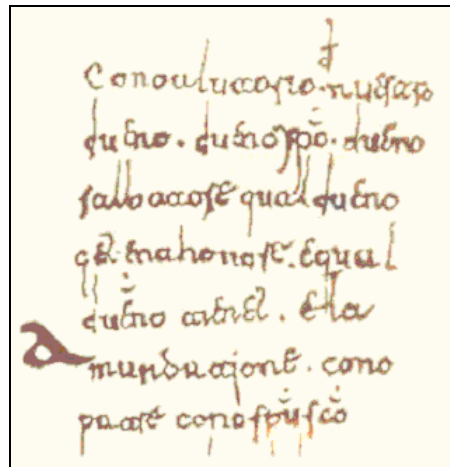 Cono aiutorio de nuestro
dueno. dueno xpo. dueno
salbatore qual dueno
get ena honore. equal
dueno tienet. ela
mandatjone. cono
patre cono spu sco